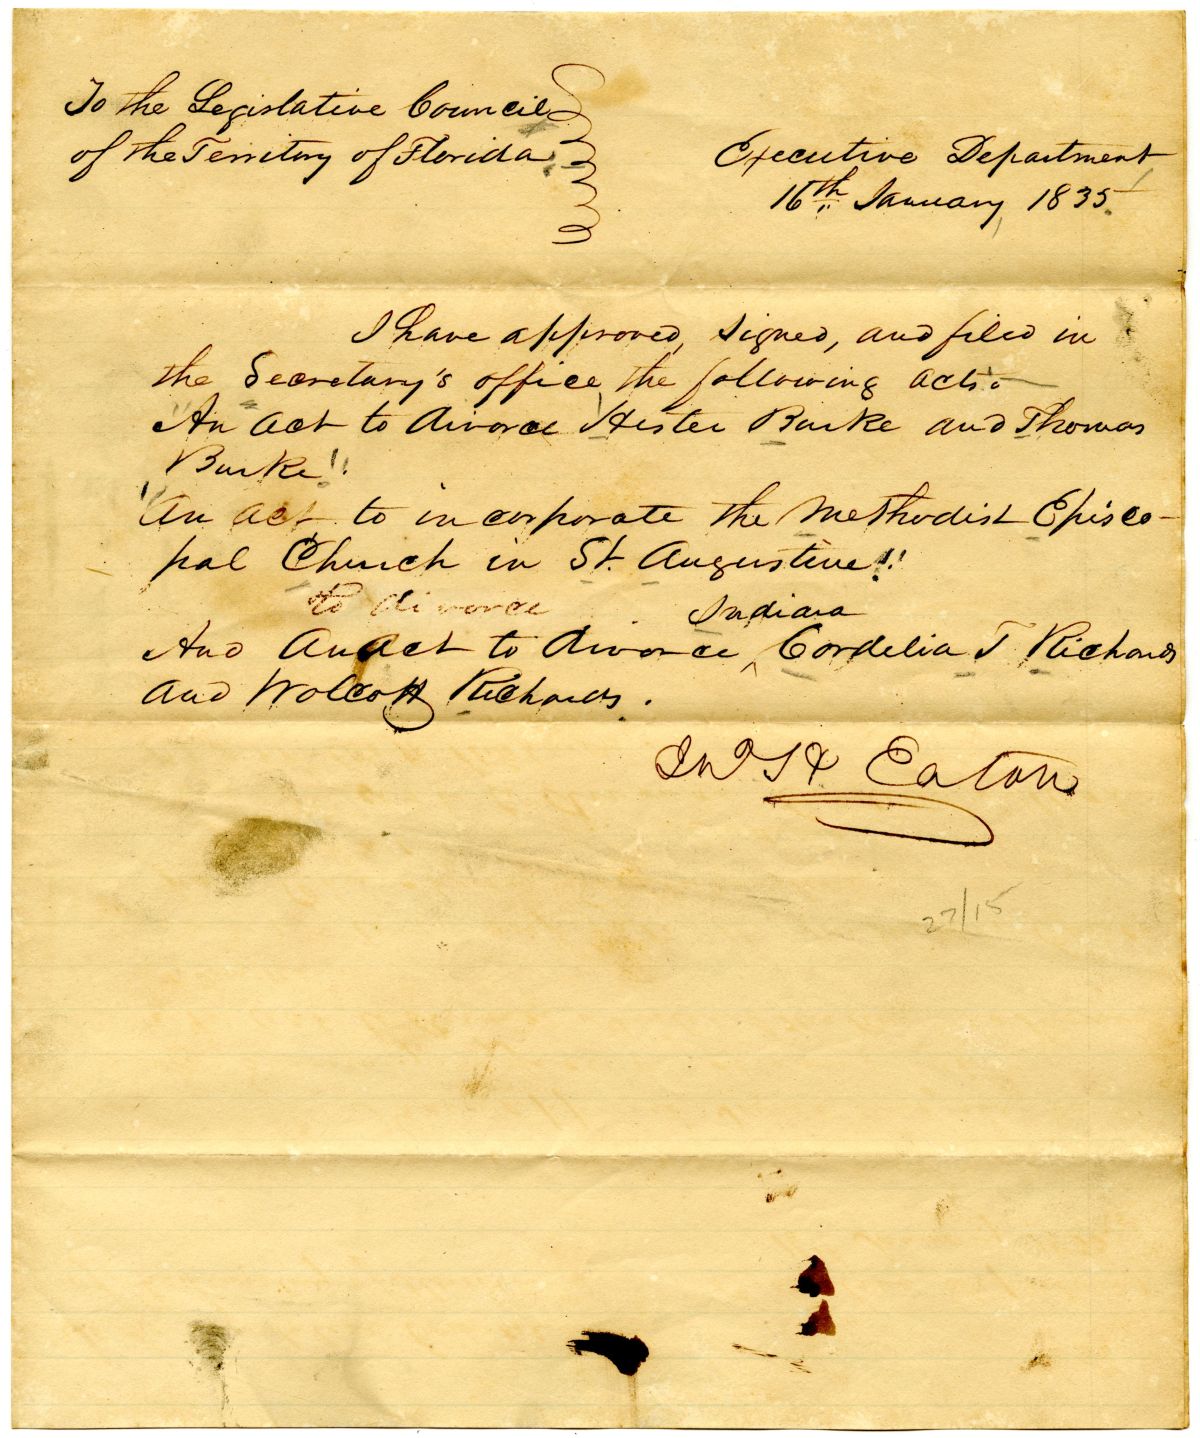 To the Legislative Council
of the Territory of Florida
Executive Department
16th January, 1835.
I have approved, signed, and filed in
the Secretary's office the following acts.
"An act to divorce Hester Burke and Thomas
Burke".
"An act to incorporate the Methodist Episco-
pal Church in St. Augustine".
to divorce
Indiana
And An act to divorce ^ Cordelia T Richards
and Wolcott Richards.
Jno H Eaton
27/15